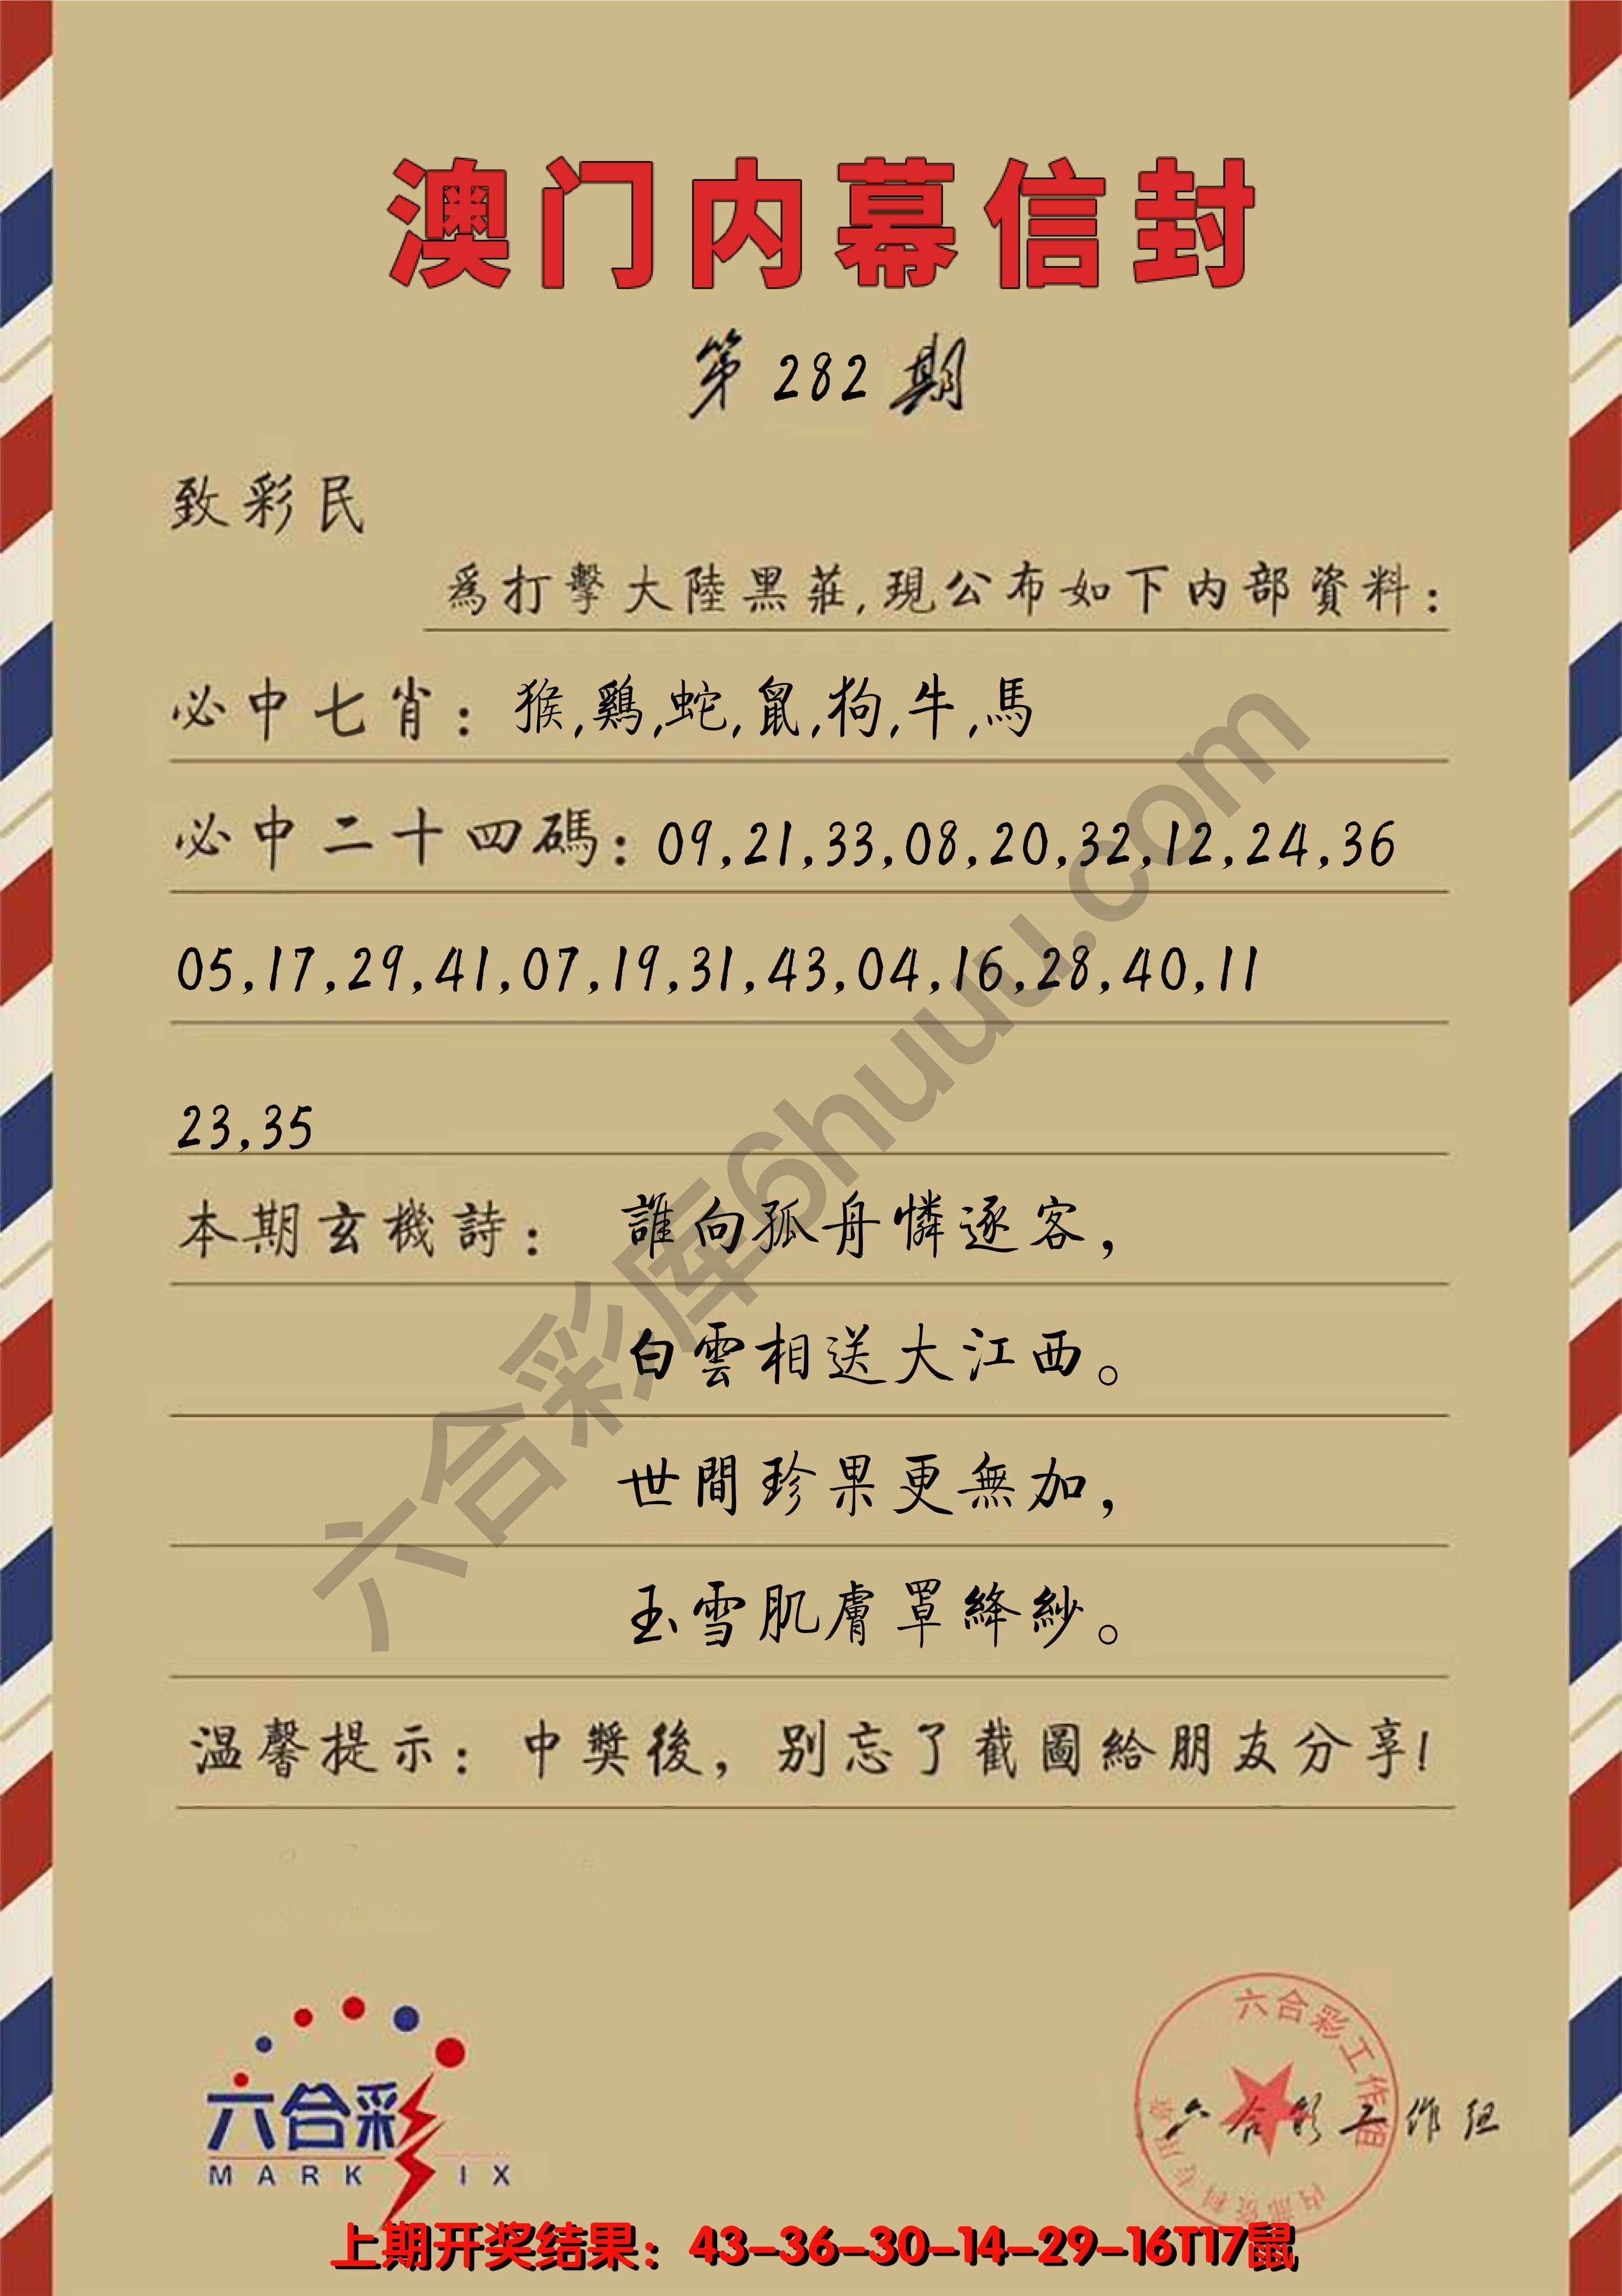 澳门内幕信封
第 282 期
致彩民
爲打擊大陸黑莊,現公布如下内部資料:
必中七肖: 猴,鷄,蛇,鼠,狗,牛,馬
必中二十四碼: 09,21,33,08,20,32,12,24,36
05,17,29,41,07,19,31,43,04,16,28,40,11
23,35
本期玄機詩: 誰向孤舟憐逐客,
白雲相送大江西。
世間珍果更無加,
玉雪肌膚罩絳紗。
温馨提示: 中獎後, 别忘了截圖給朋友分享!
六合彩库6huuu.com
六合彩
MARK IX
六合彩工作组
内部资料专用章
六合彩工作组
上期开奖结果: 43-36-30-14-29-16T17鼠